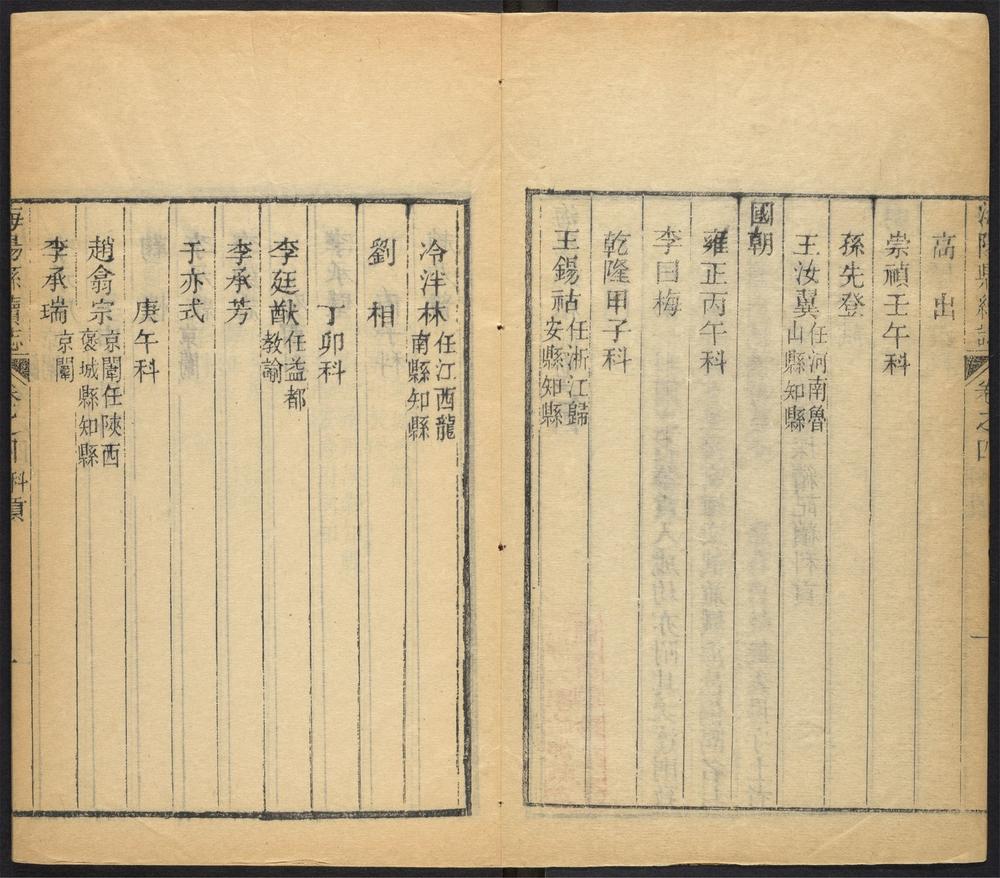 海陽縣續志 卷之四 一
高出
崇禎壬午科
孫先登
王汝翼 任河南魯山縣知縣
國朝
雍正丙午科
李曰梅
乾隆甲子科
王錫祜 任浙江歸安縣知縣
冷泮林 任江西龍南縣知縣
劉相
丁卯科
李廷猷 任益都教諭
李承芳
于亦式
庚午科
趙翕宗 京闈任陝西褒城縣知縣
李承瑞 京闈
海陽縣續志 卷之四 科貢 一